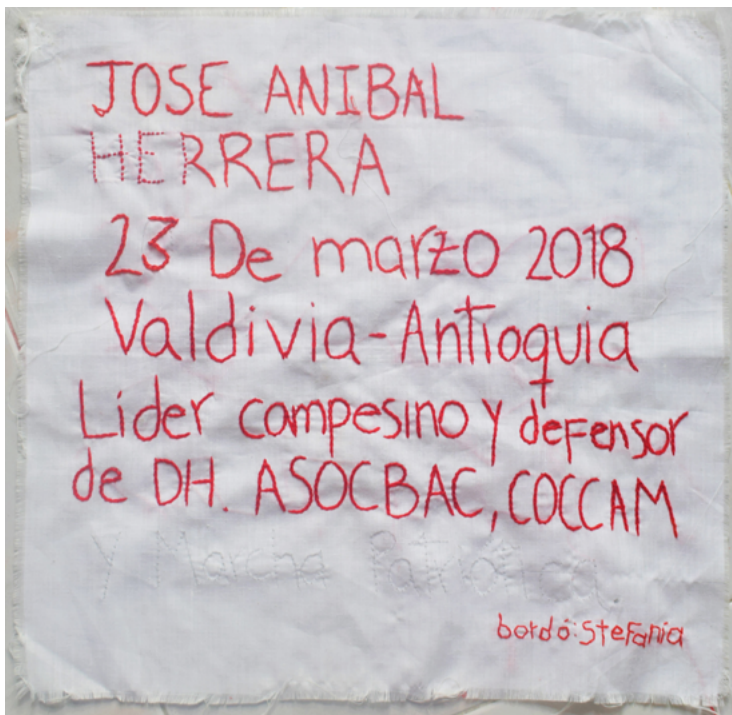 JOSE ANIBAL
HERRERA
23 De marzo 2018
Valdivia-Antioquia
Lider campesino y defensor
de DH. ASOCBAC, COCCAM
Y Marcha Patriótica.
bordó: Stefania